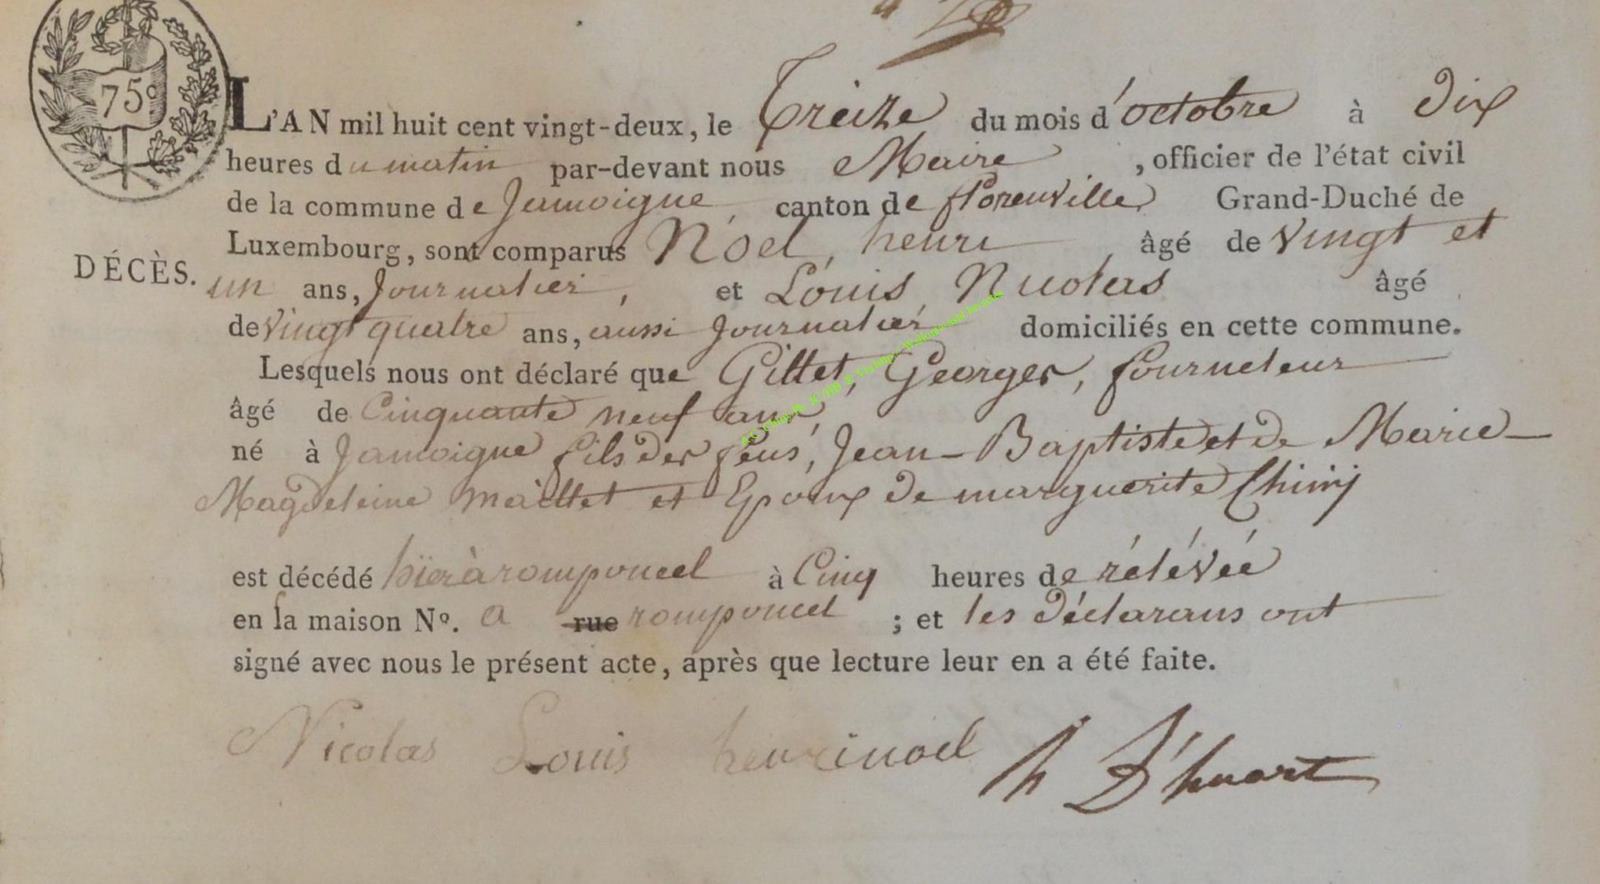 75c
L'AN mil huit cent vingt-deux, le Treize du mois d'octobre à dix
heures du matin par-devant nous Maire, officier de l'état civil
de la commune de Jamoigne, canton de florenville Grand-Duché de
Luxembourg, sont comparus Noel, henri âgé de vingt et
DÉCÈS.
un ans, Journalier, et Louis, Nicolas âgé
de vingt quatre ans, aussi Journalier domiciliés en cette commune.
Lesquels nous ont déclaré que Gillet, Georges, fourneteur
âgé de Cinquante neuf ans,
né à Jamoigne fils des feus, Jean-Baptiste et de Marie-
Magdeleine maillet et Epoux de marguerite Chiny
est décédé hier à romponcel à Cinq heures de rélévée
en la maison No. a rue romponcel ; et les déclarans ont
signé avec nous le présent acte, après que lecture leur en a été faite.
Nicolas Louis henri noel h D'huart